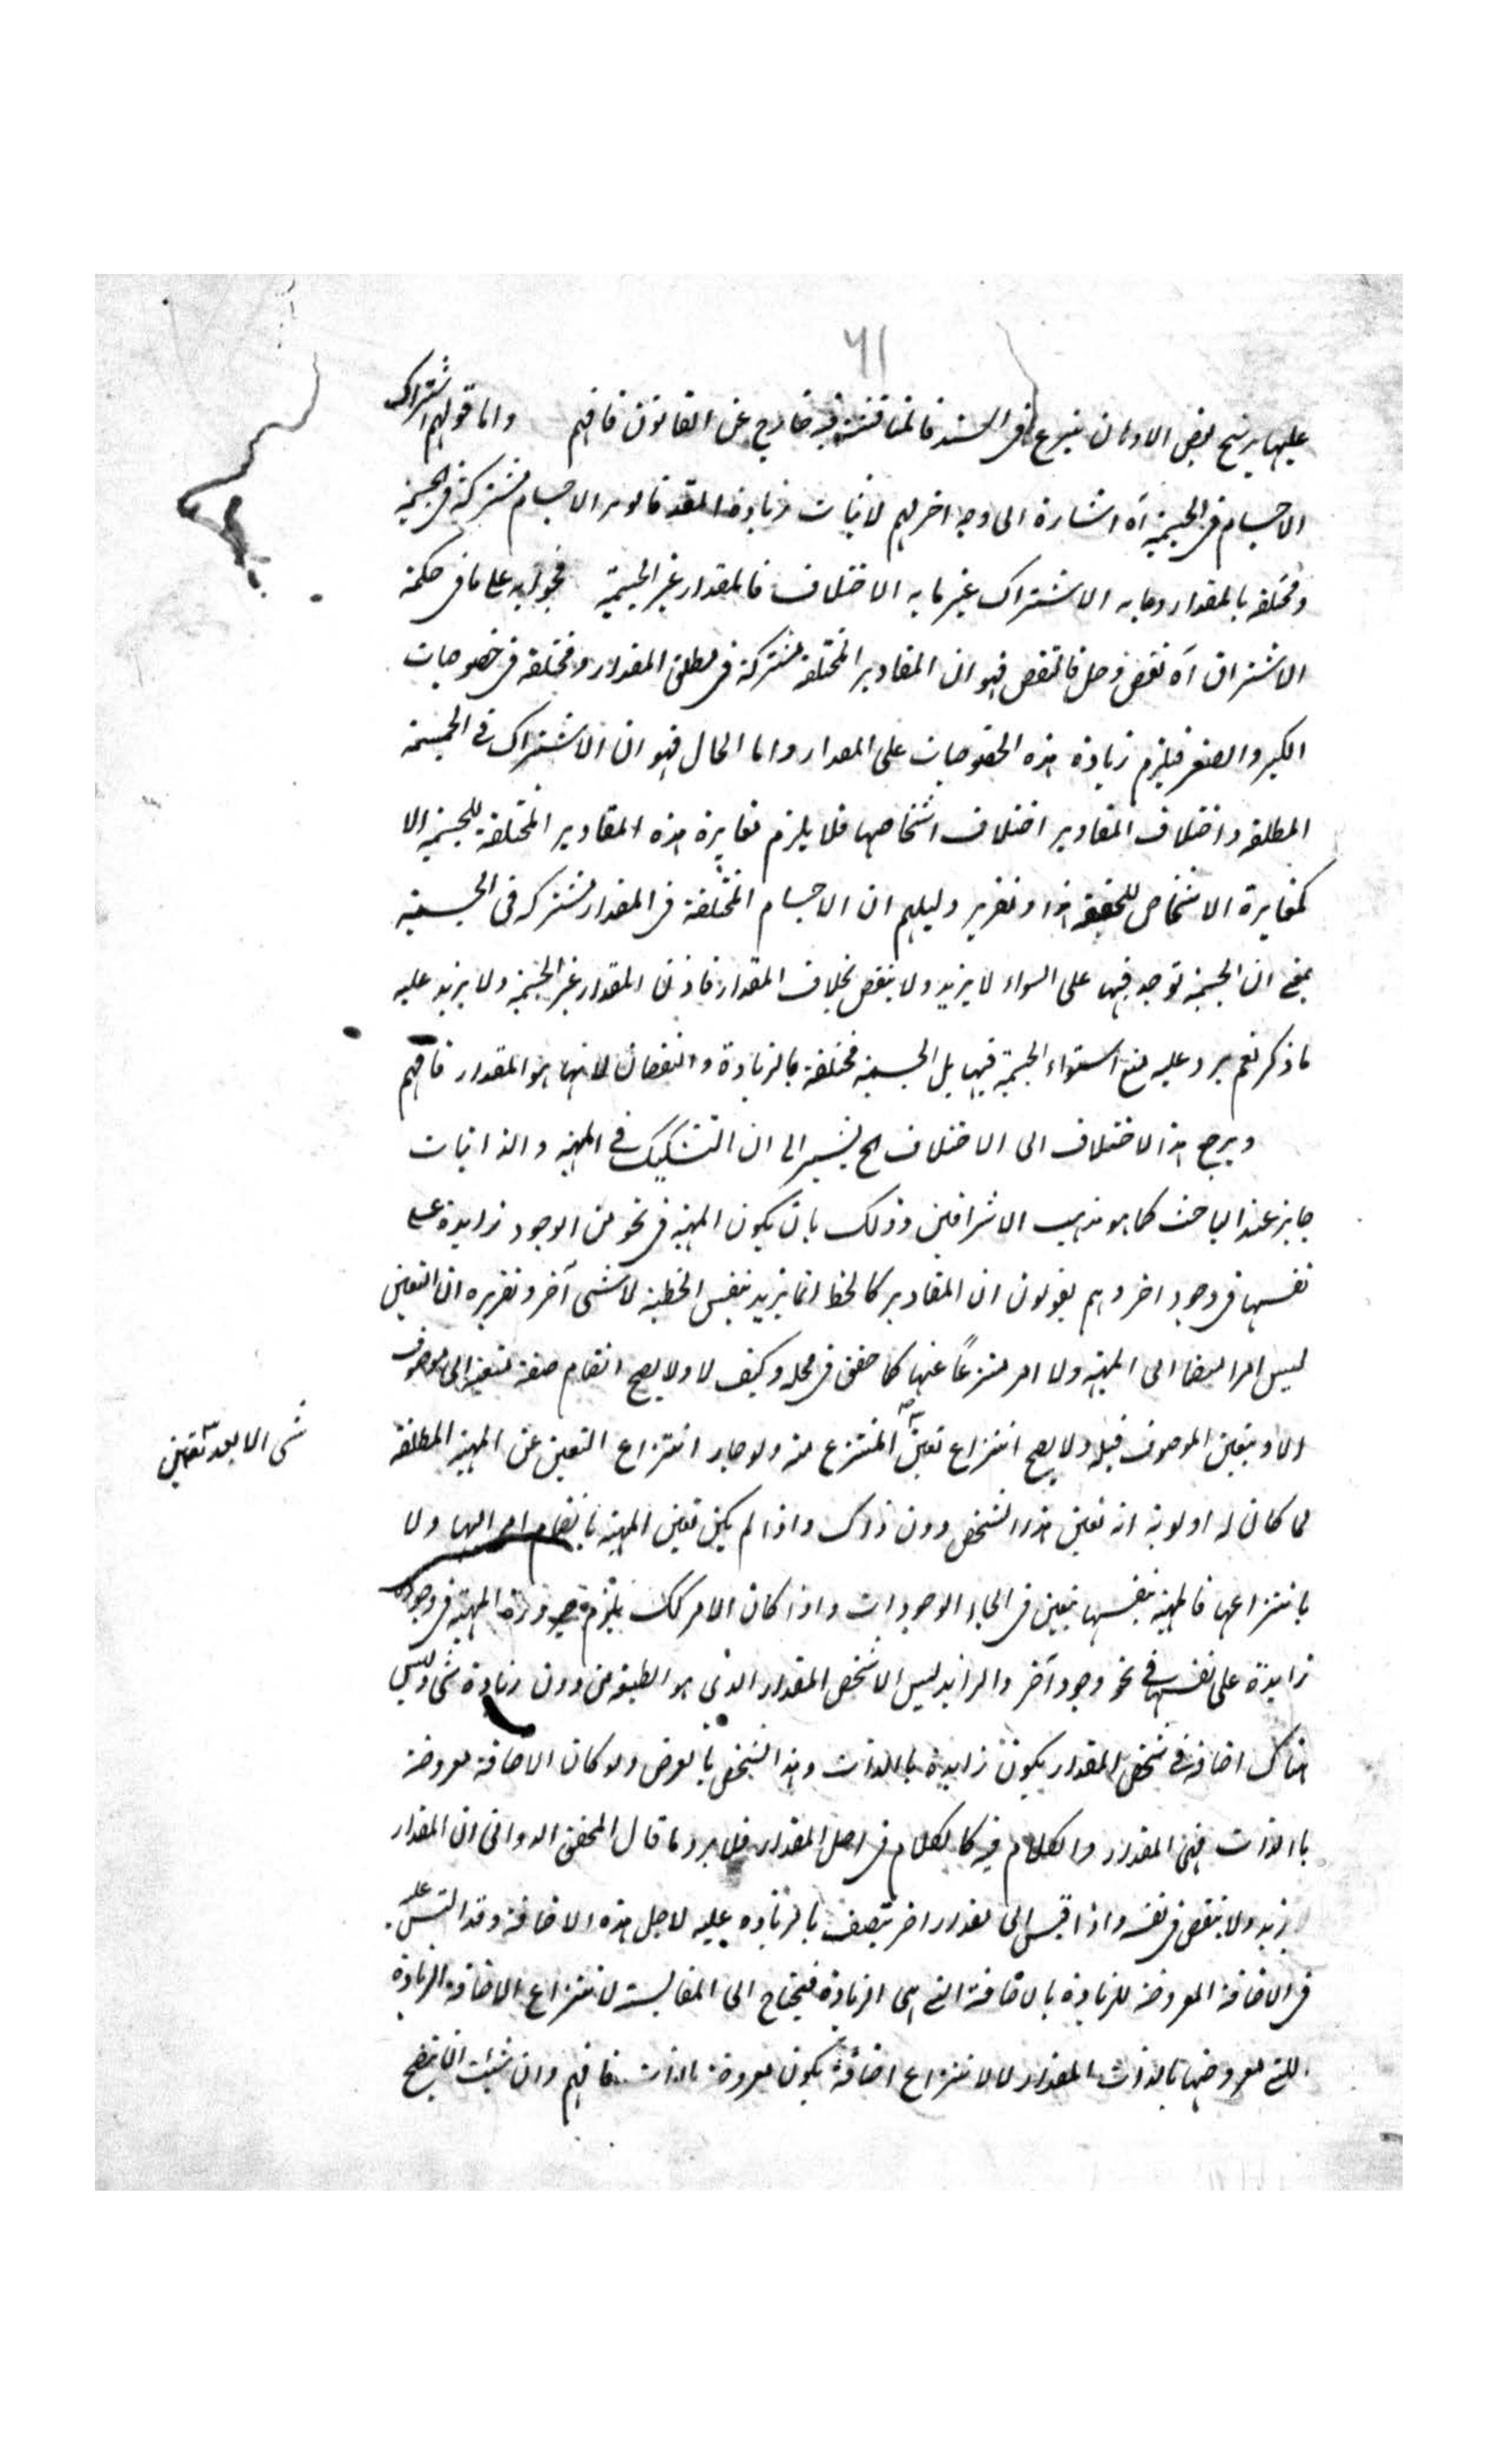 ٦١
عليها يرشح بعض الاوهان شرع فى السند فالمناقشة فيه خارج عن القانون فافهم واما قولهم اشتراك
الاجسام فى الجسمية آه اشارة الى وجه اخر لهم لاثبات زيادة المقدار قالوا الاجسام مشتركة فى الجسمية
ومختلفة بالمقدار وما به الاشتراك غير ما به الاختلاف فالمقدار غير الجسمية فجوابه على ما فى حكمة
الاشراق آه نقض وحل فالنقض فهو ان المقادير المختلفة مشتركة فى مطلق المقدار ومختلفة فى خصوصيات
الكبر والصغر فيلزم زيادة هذه الخصوصيات على المقدار واما الحال فهو ان الاشتراك فى الجسمية
المطلقة واختلاف المقادير اختلاف اشخاصها فلا يلزم مغايرة هذه المقادير المختلفة للجسمية الا
كمغايرة الاشخاص للحقيقة هذا وتقرير دليلهم ان الاجسام المختلفة فى المقدار مشتركة فى الجسمية
بمعنى ان الجسمية توجد فيها على السواء لا يزيد ولا ينقص بخلاف المقدار فاذن المقدار غير الجسمية ولا يرد عليه
ما ذكر نعم يرد عليه منع استواء الجسمية فيها بل الجسمية مختلفة بالزيادة والنقصان لانها هو المقدار فافهم
ويرجع هذا الاختلاف الى الاختلاف الخ يشير الى ان التشكيك فى المهية والذاتيات
جايز عند الباحث كما هو مذهب الاشراقين وذلك بان يكون المهية فى نحو من الوجود زايدة على
نفسها فى وجود اخر وهم يقولون ان المقادير كالخط انما يزيد بنفس الخطية لا بشئ آخر وتقريره ان التعين
ليس امرا منضما الى المهية ولا امر منتزعاً عنها كما حقق فى محله وكيف لا ولا يصح انضمام صفة متعينة الى موصوف
الا وبتعين الموصوف قبله ولا يصح انتزاع تعين المنتزع منه ولو جاز انتزاع التعين عن المهية المطلقة
شئ الا بعد تعين
لما كان له اولوية انه تعين هذا الشخص دون ذاك واذا لم يكن تعين المهية بانضمام امر اليها ولا
بانتزاعها فالمهية بنفسها بتعين فى انحاء الوجودات واذا كان الامر كك يلزم صيرورة المهية فى وجود
زايدة على نفسها فى نحو وجود آخر والزايد ليس الا شخص المقدار الذى هو الطبيعة من دون زيادة شئ وليس
هناك اضافة فى شخص المقدار يكون زايدة بالذات وهذا الشخص بالعرض ولو كان الاضافة معروضة
بالذات فهى المقدار والكلام فيه كالكلام فى اصل المقدار فلا يرد ما قال المحقق الدوانى ان المقدار
لا يزيد ولا ينقص فى نفسه واذا قيس الى مقدار اخر يتصف بالزيادة عليه لاجل هذه الاضافة وقد التبس عليه
فى الاضافة المعروضة للزيادة بالاضافة التى هى الزيادة فيحتاج الى المقايسة لانتزاع الاضافة الزيادة
التى معروضها بالذات المقدار لا لانتزاع اضافة يكون معروضة بالذات فافهم وان شئت ان يتضح